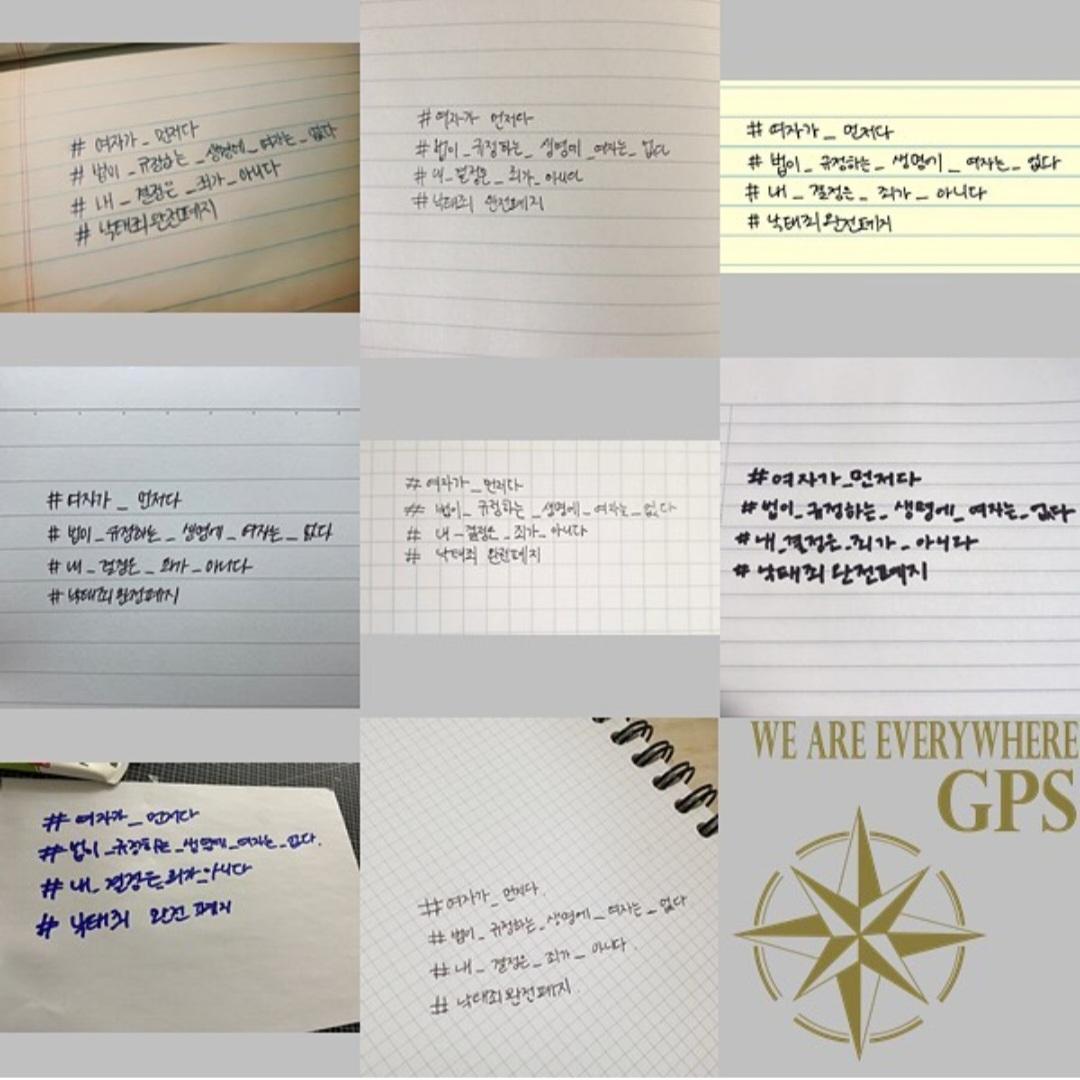 # 여자가 _ 먼저다
# 법이 _ 규정하는 _ 생명에 _ 여자는 _ 없다
# 내 _ 결정은 _ 죄가 _ 아니다
# 낙태죄 완전폐지
# 여자가 먼저다
# 법이 _ 규정하는 _ 생명에 _ 여자는 _ 없다
# 내 _ 결정은 _ 죄가 _ 아니다
# 낙태죄 완전폐지
# 여자가 _ 먼저다
# 법이 _ 규정하는 _ 생명에 _ 여자는 _ 없다
# 내 _ 결정은 _ 죄가 _ 아니다
# 낙태죄 완전폐지
# 여자가 _ 먼저다
# 법이 _ 규정하는 _ 생명에 _ 여자는 _ 없다
# 내 _ 결정은 _ 죄가 _ 아니다
# 낙태죄 완전폐지
# 여자가 _ 먼저다
# 법이 _ 규정하는 _ 생명에 _ 여자는 _ 없다
# 내 _ 결정은 _ 죄가 _ 아니다
# 낙태죄 완전폐지
# 여자가 _ 먼저다
# 법이 _ 규정하는 _ 생명에 _ 여자는 _ 없다
# 내 _ 결정은 _ 죄가 _ 아니다
# 낙태죄 완전폐지
# 여자가 _ 먼저다
# 법이 _ 규정하는 _ 생명에 _ 여자는 _ 없다.
# 내 _ 결정은 _ 죄가 _ 아니다
# 낙태죄 완전 폐지
# 여자가 _ 먼저다.
# 법이 _ 규정하는 _ 생명에 _ 여자는 _ 없다
# 내 _ 결정은 _ 죄가 _ 아니다.
# 낙태죄 완전폐지.
WE ARE EVERYWHERE
GPS